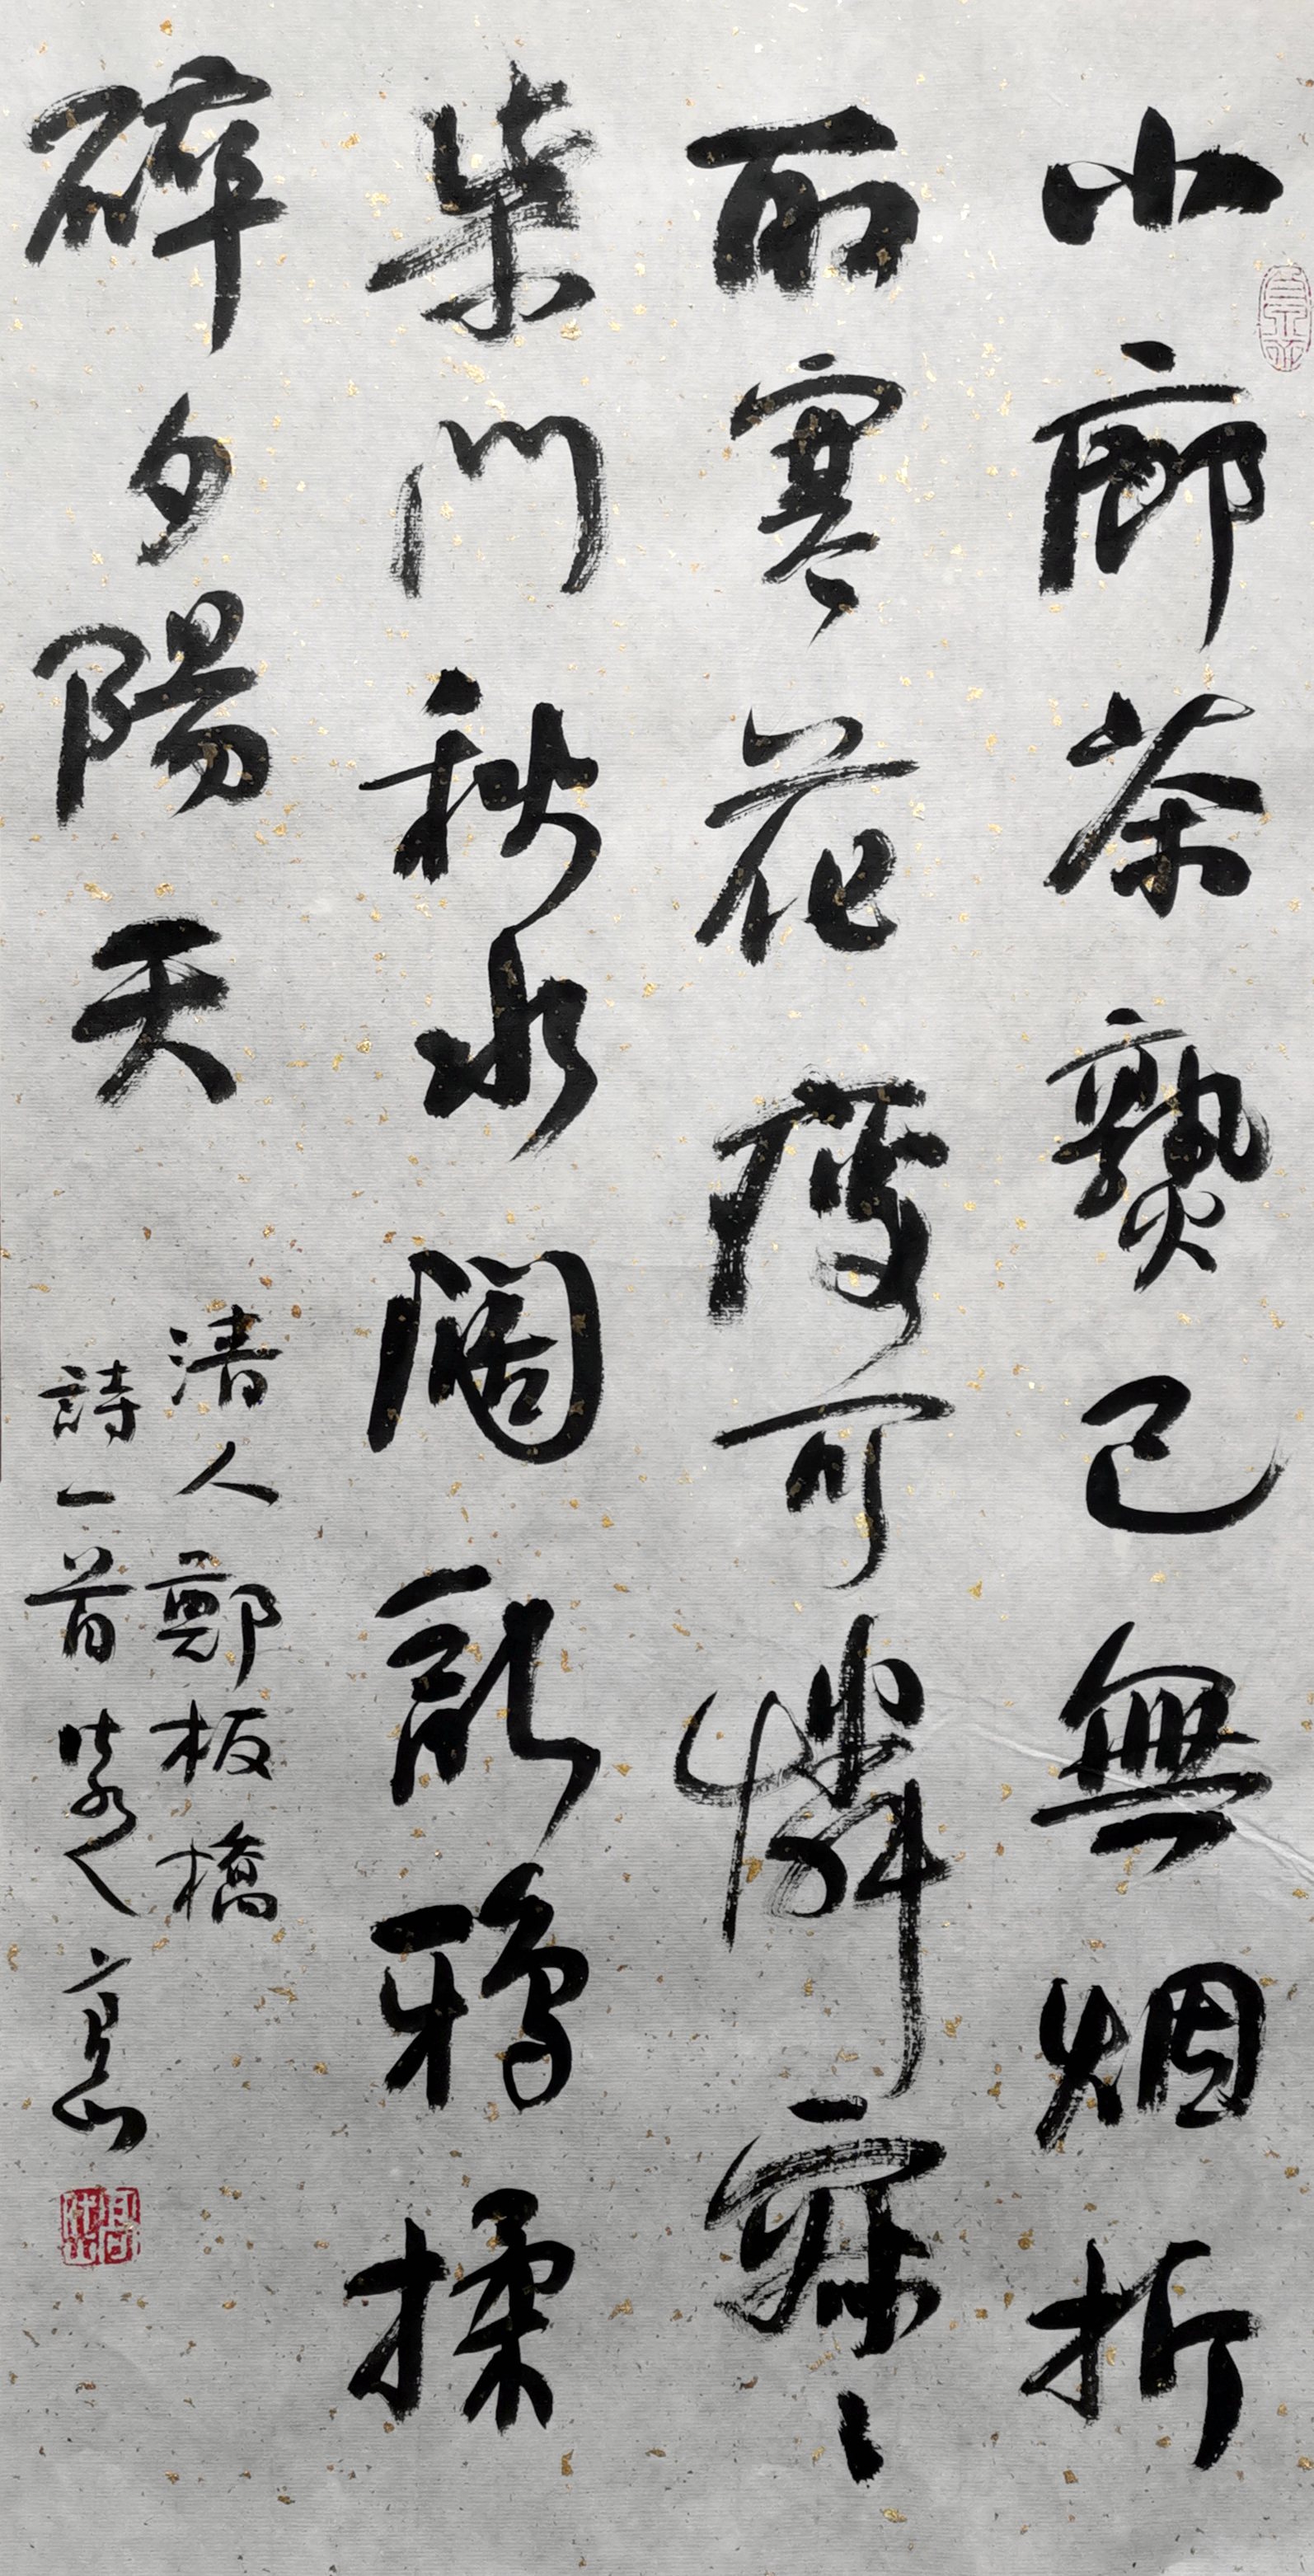 小廊茶熟已無烟折
取寒花瘦可憐寂々
柴門秋水闊亂鴉揉
碎夕陽天
清人鄭板橋
詩一首